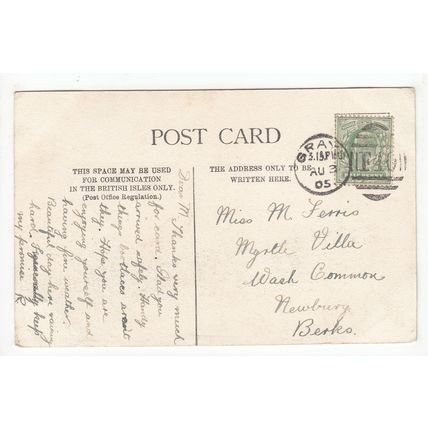 POST CARD
THIS SPACE MAY BE USED
FOR COMMUNICATION
IN THE BRITISH ISLES ONLY.
(Post Office Regulation.)
THE ADDRESS ONLY TO BE
WRITTEN HERE.
Dear M. Thanks very much
for card. Glad you
arrived safely. Handy
things brollies aren't
they. Hope you are
enjoying yourself and
having fine weather.
Beautiful day here raining
hard. Generally keep
my promise R
GRAV
3.15PM
AU 3
05
Miss M. Ferris
Myrtle Villa
Wash Common
Newbury
Berks.